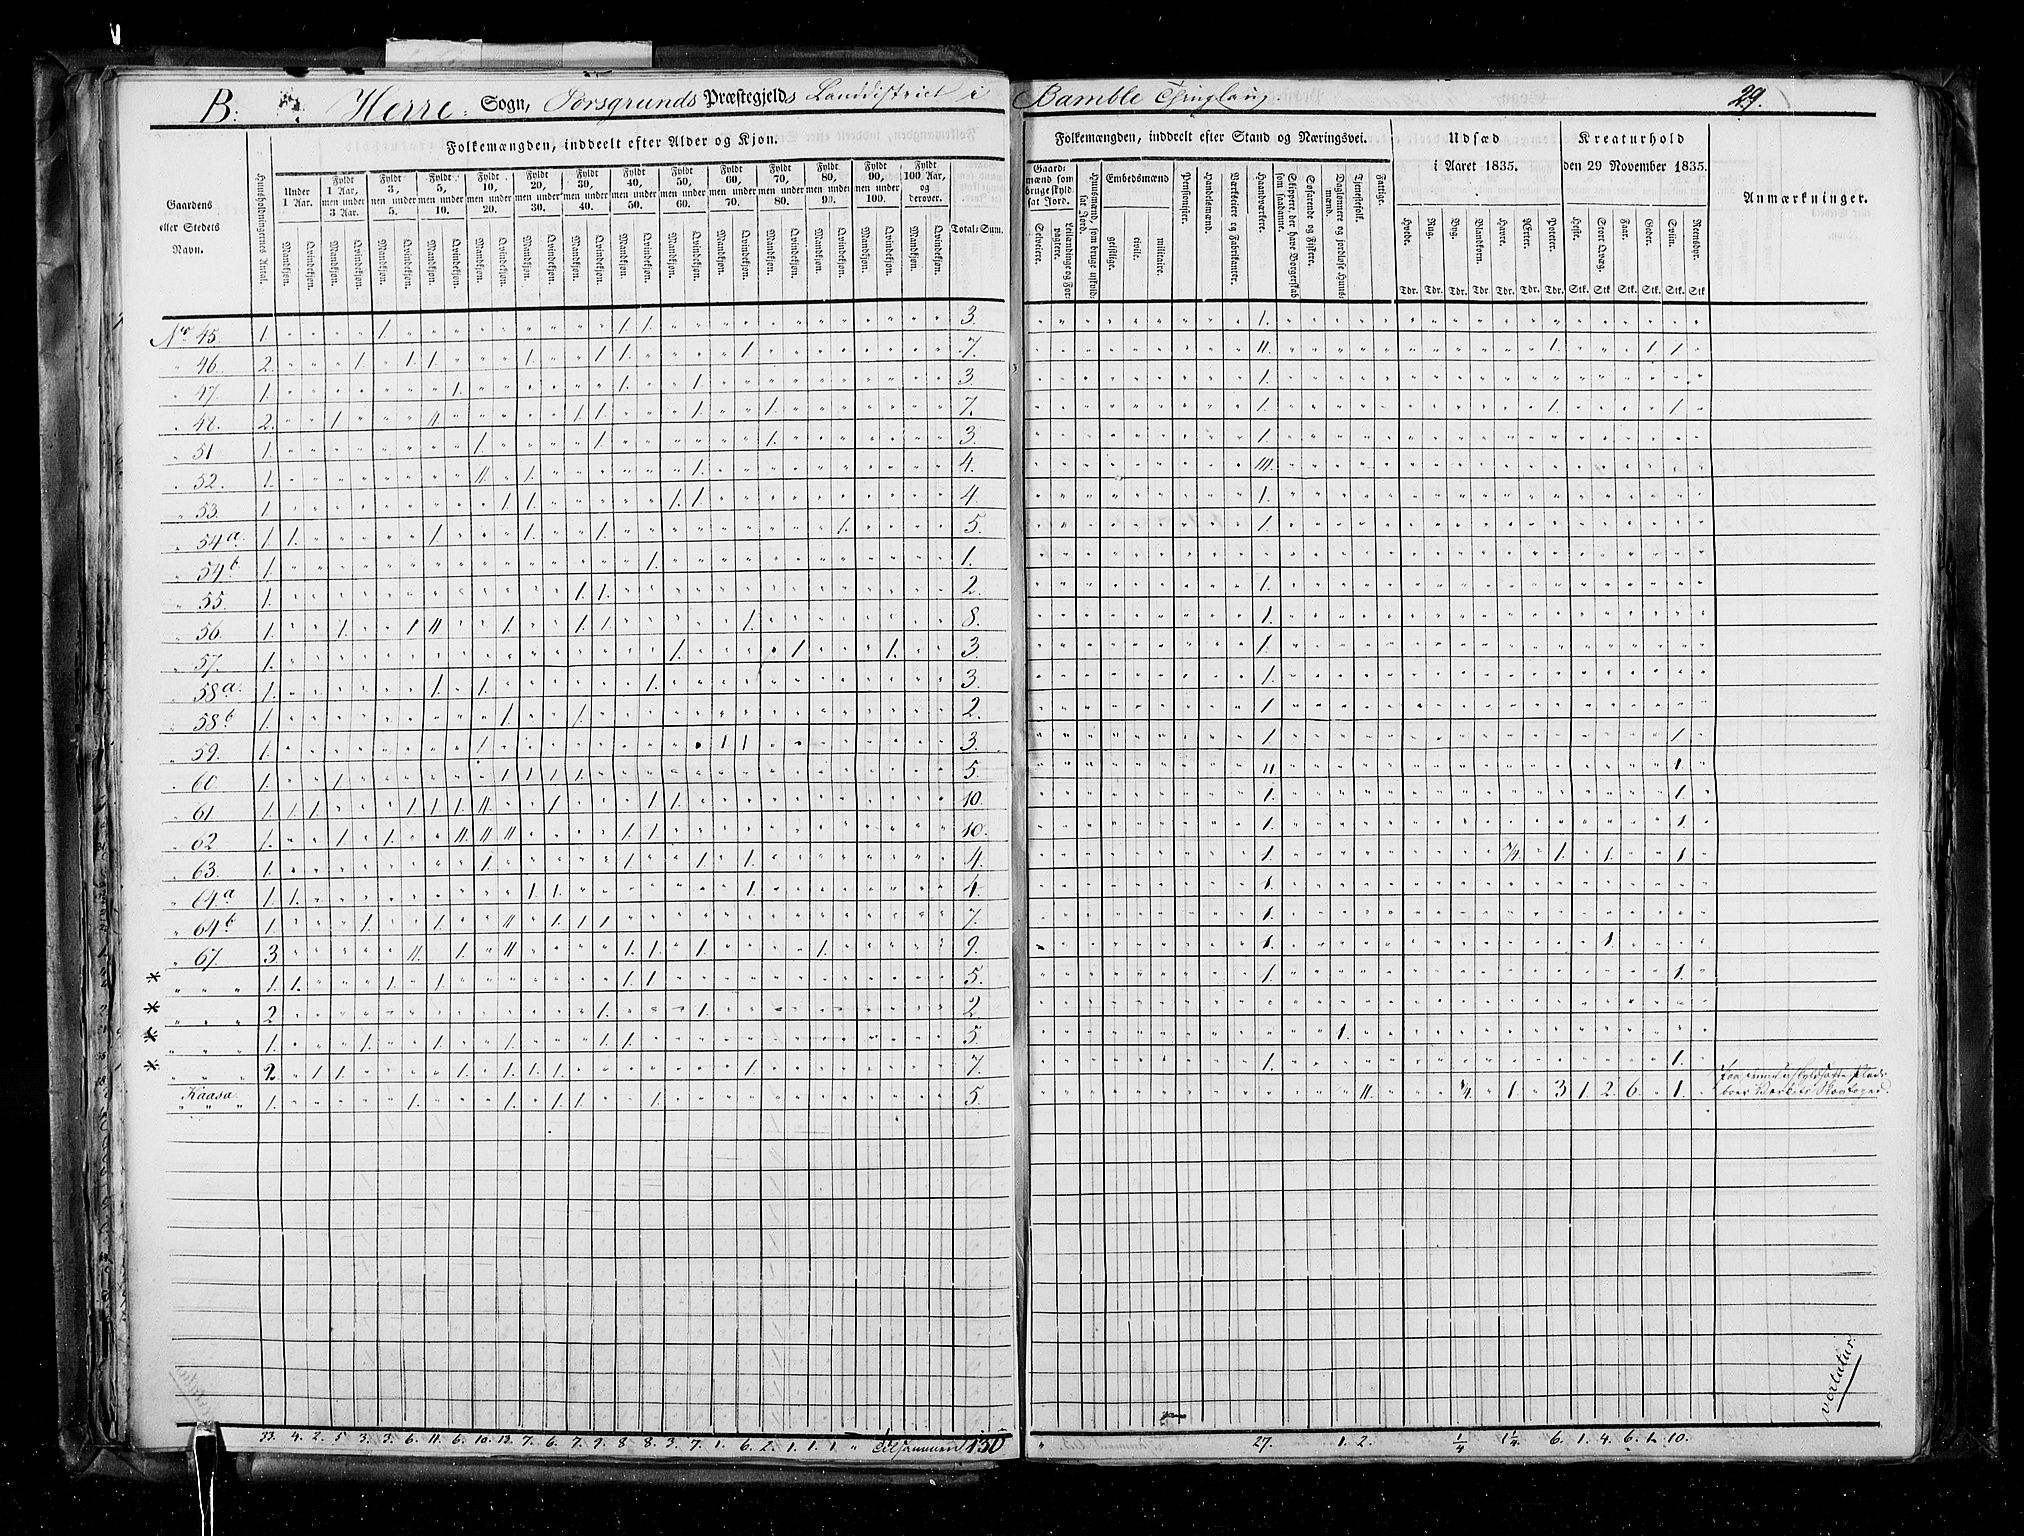 B. Herre Sogn, Porsgrunds Præstegjelds Landdistrict i Bamble Thinglaug 29.
Gaardens eller Stedets Navn.
Huusholdningernes Antal.
Folkemængden, inddeelt efter Alder og Kjøn.
Under 1 Aar.
Fyldt 1 Aar, men under 3 Aar.
Fyldt 3, men under 5.
Fyldt 5, men under 10.
Fyldt 10, men under 20.
Fyldt 20, men under 30.
Fyldt 30, men under 40.
Fyldt 40, men under 50.
Fyldt 50, men under 60.
Fyldt 60, men under 70.
Fyldt 70, men under 80.
Fyldt 80, men under 90.
Fyldt 90, men under 100.
Fyldt 100 Aar, og derover.
Mandkjøn. Qvindekjøn.
Total-Sum.
Folkemængden, inddeelt efter Stand og Næringsvei.
Gaardmænd som bruge skyldsat Jord.
Selveiere.
Leilændinge og Forpagtere.
Huusmænd, som bruge uskyldsat Jord.
Embedsmænd
geistlige. civile. militaire.
Pensionister.
Handelsmænd.
Værkseiere og Fabrikanter.
Haandværkere.
Skippere, der have Borgerskab som saadanne.
Søfarende og Fiskere.
Daglønnere og jordløse Huusmænd.
Tjenestefolk.
Fattige.
Udsæd i Aaret 1835.
Hvede. Rug. Byg. Blandkorn. Havre. Ærter. Poteter.
Tdr. Tdr. Tdr. Tdr. Tdr. Tdr. Tdr.
Kreaturhold den 29 November 1835.
Heste. Stort Qvæg. Faar. Geder. Sviin. Reensdyr.
Stk. Stk. Stk. Stk. Stk. Stk.
Anmærkninger.
No 45. 1. 1. 1. 1. 3. 1.
" 46. 2. 1. 1. 1. 1. 1. 1. 1. 7. 11. 1. 1. 1.
" 47. 1. 1. 1. 1. 3. 1.
" 48. 2. 1. 11. 1. 1. 1. 1. 7. 1. 1. 1.
" 51 1. 1. 1. 1. 3. 1.
" 52. 1. 11. 1. 1. 4. 111.
" 53. 1. 1. 1. 1. 1. 4. 1.
" 54a. 1. 1. 1. 1. 1. 1. 5. 1.
" 54b 1. 1. 1.
" 55. 1. 1. 1. 2. 1.
" 56. 1. 1. 1. 11. 1. 1. 1. 1. 8. 1.
" 57. 1. 1. 1. 1. 3 1.
" 58a. 1. 1. 1. 1. 3. 1.
" 58b 1. 1. 1. 2. 1.
" 59. 1. 1. 1 1 3. 1 1.
" 60. 1. 1. 1. 1. 1. 1. 5. 11 1.
" 61 1. 1. 1. 1. 1. 1. 11. 1. 1. 1. 10. 1. 1.
" 62 1. 1. 1. 11. 11. 11 1. 1. 10. 1. 1
" 63. 1. 1. 1. 1. 1. 4. 1. 1/4. 1. 1. 1.
" 64a 1. 1. 1. 1. 1. 4. 1.
" 64b. 1. 1. 1. 11 1. 1. 1. 7. 1.
" 67. 3. 11. 1. 11 1. 1. 1. 1. 9. 1. 1.
* " " " 1. 1. 1. 1. 1. 1. 5. 1. 1.
* " " " 2 1. 1. 2
* " " " 1. 1. 1. 1. 1. 1. 5. 1.
* " " " 2. 1 1. 1. 1. 1. 1. 1. 7. 1. 1.
Kaasa 1. 1. 1. 1. 1. 1. 5. 11. 1/4. 1. 3 1. 2. 6. 1.
vertatur.
33. 4. 2. 5. 3. 3. 6. 11. 6. 10. 13. 7. 6. 7. 9. 8 8. 3. 7. 1. 6. 2. 1. 1. 1. 130
27. 1. 2. 1/4 1 1/4. 6. 1. 4. 6. 1. 10.